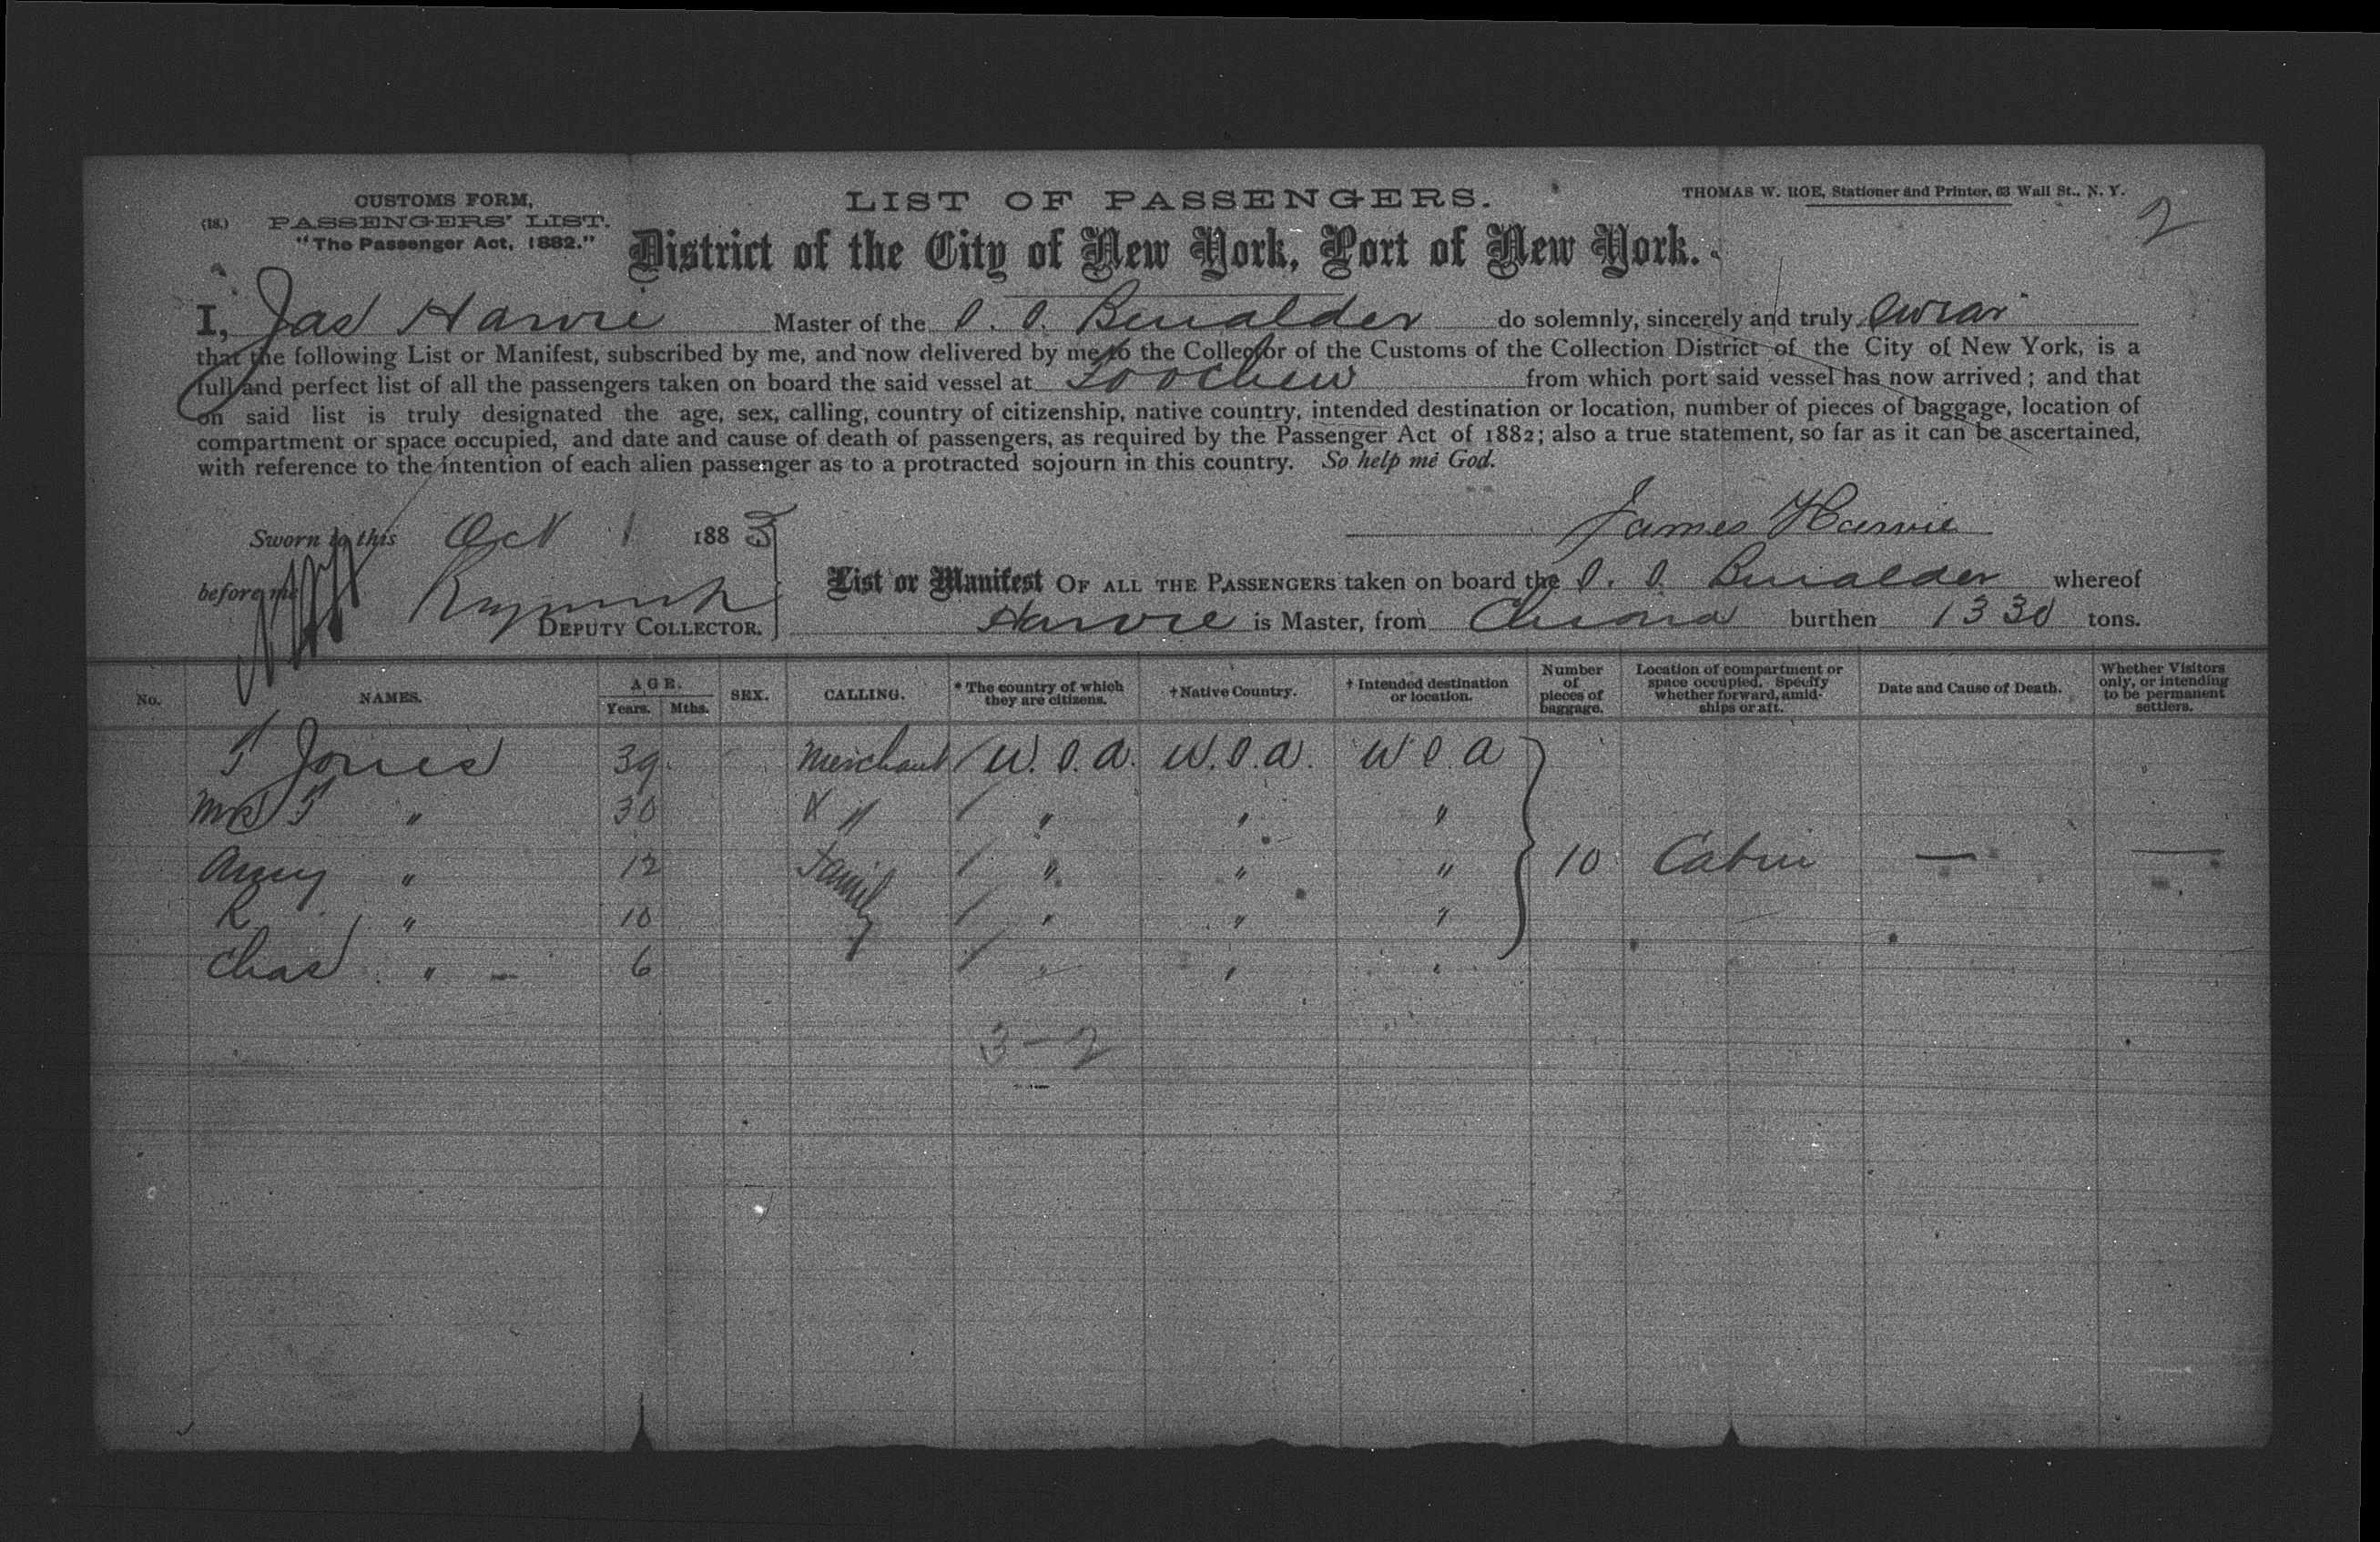 CUSTOMS FORM,
(18.) PASSENGERS' LIST.
"The Passenger Act, 1882."
LIST OF PASSENGERS.
THOMAS W. ROE, Stationer and Printer, 63 Wall St., N. Y.
2
District of the City of New York, Port of New York.
I, Jas Harvie Master of the S. S. Benalder do solemnly, sincerely and truly swear
that the following List or Manifest, subscribed by me, and now delivered by me to the Collector of the Customs of the Collection District of the City of New York, is a
full and perfect list of all the passengers taken on board the said vessel at Foochew from which port said vessel has now arrived; and that
on said list is truly designated the age, sex, calling, country of citizenship, native country, intended destination or location, number of pieces of baggage, location of
compartment or space occupied, and date and cause of death of passengers, as required by the Passenger Act of 1882; also a true statement, so far as it can be ascertained,
with reference to the intention of each alien passenger as to a protracted sojourn in this country. So help me God.
Sworn to this Oct 1 1883
James Harvie
before me
DEPUTY COLLECTOR.
List or Manifest OF ALL THE PASSENGERS taken on board the S. S. Benalder whereof
Harvie is Master, from China burthen 1330 tons.
No. NAMES. AGE. Years. Mths. SEX. CALLING. * The country of which they are citizens. † Native Country. † Intended destination or location. Number of pieces of baggage. Location of compartment or space occupied. Specify whether forward, amidships or aft. Date and Cause of Death. Whether Visitors only, or intending to be permanent settlers.
T Jones 39 Merchant U. S. A. U. S. A. U S A
Mrs T " 30 " " " "
Amy " 12 Family " " " 10 Cabin — —
R " 10 " " "
Chas " - 6 " " "
3 - 2